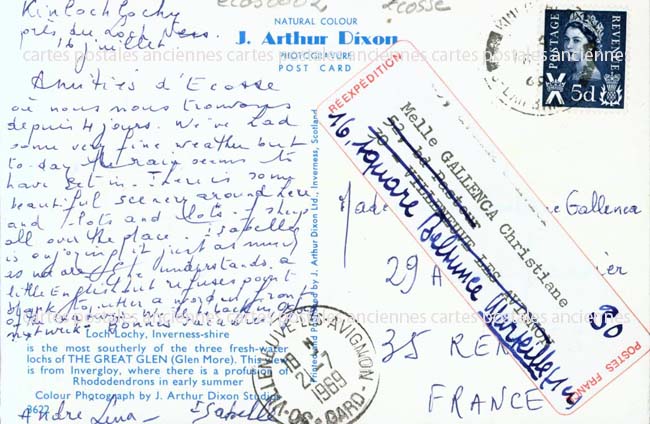 Kinloch Lochy
près du Loch Ness.
16 juillet
ecos0002
Ecosse
NATURAL COLOUR
J. Arthur Dixon
PHOTOGRAVURE
POST CARD
cartes postales anciennes
Amitiés d'Ecosse
où nous nous trouvons
depuis 4 jours. We've had
some very fine weather but
to-day the rain seems to
have set in. There is some
beautiful scenery around here
and lots and lots of sheep
all over the place. Isabelle
is enjoying it just as much
as we are. She understands a
little English but refuses point
blank to utter a word in front
of
Loch Lochy, Inverness-shire
is the most southerly of the three fresh-water
lochs of THE GREAT GLEN (Glen More). This view
is from Invergloy, where there is a profusion of
Rhododendrons in early summer
Colour Photograph by J. Arthur Dixon Studios
3627
André Lena - Isabelle
Printed and Published by J. Arthur Dixon Ltd., Inverness, Scotland
POSTAGE
REVENUE
5d
RÉEXPÉDITION
Melle GALLENCA Christiane
52, bd Pasteur
30 - VILLENEUVE LES AVIGNON
16, square Belsunce Marseille
POSTES FRANCE
30
Gallenca
29 A
35 REN
FRANCE
VILLENEUVE-LES-AVIGNON
21-7
1969
30 GARD